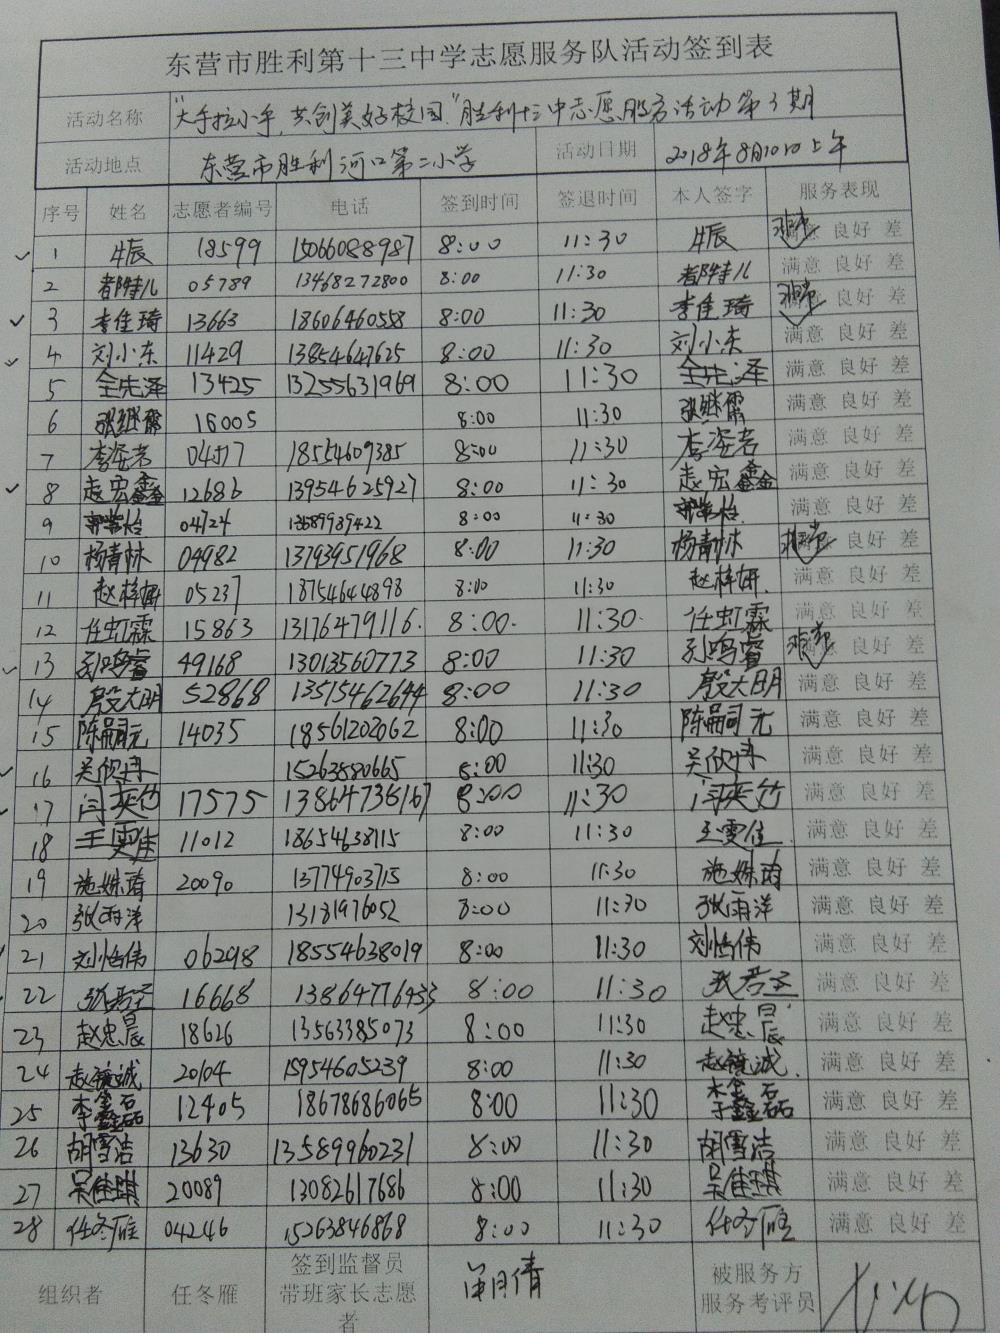 东营市胜利第十三中学志愿服务队活动签到表
活动名称 "大手拉小手,共创美好校园"胜利十三中志愿服务活动第3期
活动地点 东营市胜利河口第二小学 活动日期 2018年8月10日上午
序号 姓名 志愿者编号 电话 签到时间 签退时间 本人签字 服务表现
1 牛辰 18599 15066088987 8:00 11:30 牛辰 良好 差
2 05789 13468272800 8:00 11:30 满意 良好 差
3 李佳琦 13663 18606460558 8:00 11:30 李佳琦 良好 差
4 刘小东 11429 13854647625 8:00 11:30 刘小东 满意 良好 差
5 全先泽 13425 13255631969 8:00 11:30 全先泽 满意 良好 差
6 张继霈 16005 8:00 11:30 张继霈 满意 良好 差
7 李姿若 04577 18554609385 8:00 11:30 李姿若 满意 良好 差
8 赵宏鑫 12686 13954625927 8:00 11:30 赵宏鑫 满意 良好 差
9 04724 13689939422 8:00 11:30 满意 良好 差
10 杨青林 04982 13793951968 8:00 11:30 杨青林 良好 差
11 赵梓妍 05237 18754644898 8:00 11:30 赵梓妍 满意 良好 差
12 任虹霖 15863 13176479116 8:00 11:30 任虹霖 满意 良好 差
13 孙鸣睿 49168 13013560773 8:00 11:30 孙鸣睿 良好 差
14 殷大明 52868 13515462644 8:00 11:30 殷大明 满意 良好 差
15 陈嗣元 14035 18561202062 8:00 11:30 陈嗣元 满意 良好 差
16 吴欣冉 15263880665 8:00 11:30 吴欣冉 满意 良好 差
17 闫奕竹 17575 13864736167 8:00 11:30 闫奕竹 满意 良好 差
18 王雯佳 11012 18654638115 8:00 11:30 王雯佳 满意 良好 差
19 施姝琦 20090 13774903715 8:00 11:30 施姝琦 满意 良好 差
20 张雨洋 13181976052 8:00 11:30 张雨洋 满意 良好 差
21 刘怡伟 06298 18554638019 8:00 11:30 刘怡伟 满意 良好 差
22 张若圣 16668 13864776433 8:00 11:30 张若圣 满意 良好 差
23 赵忠晨 18626 13563385073 8:00 11:30 赵忠晨 满意 良好 差
24 赵镜诚 20104 15954605239 8:00 11:30 赵镜诚 满意 良好 差
25 李鑫磊 12405 18678686065 8:00 11:30 李鑫磊 满意 良好 差
26 胡雪洁 13630 13589960231 8:00 11:30 胡雪洁 满意 良好 差
27 吴佳琪 20089 13082617686 8:00 11:30 吴佳琪 满意 良好 差
28 任冬雁 04246 15263846868 8:00 11:30 任冬雁 满意 良好 差
组织者 任冬雁 签到监督员 被服务方
带班家长志愿 服务考评员
者